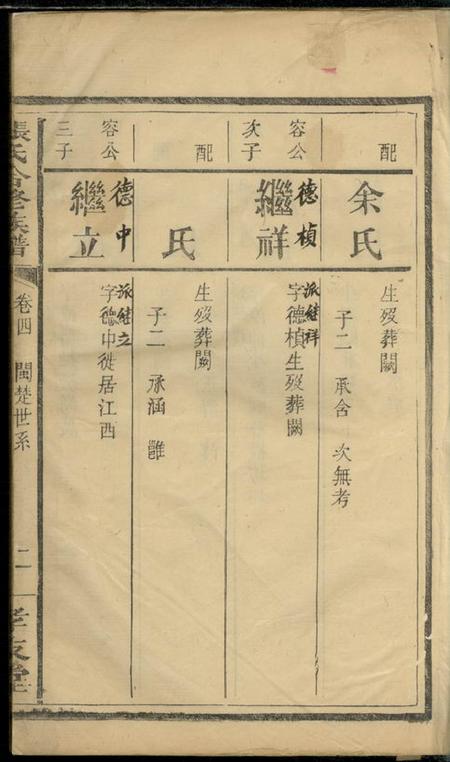 配
余氏
生歿葬闕
子二 承舍 次無考
容公
次子
德楨
繼祥
派繼祥
字德楨生歿葬闕
配
氏
生歿葬闕
子二 承涵 雝
容公
三子
德中
繼立
派繼立
字德中徙居江西
張氏合修族譜
卷四 閩楚世系
二
孝友堂